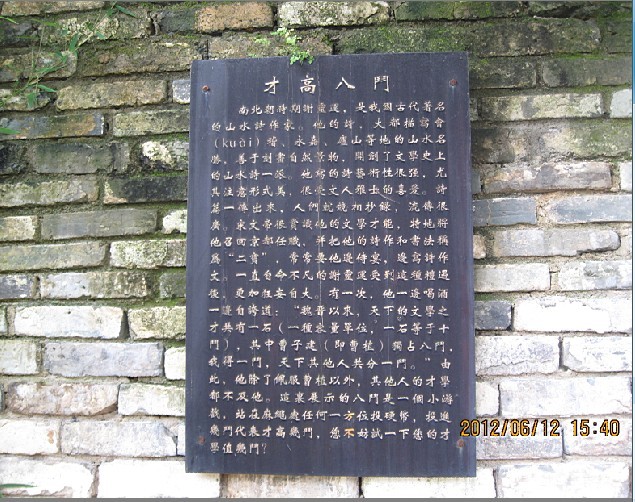 才高八鬥
南北朝時期謝靈運，是我國古代著名
的山水詩作家。他的詩，大都描寫會
(kuài)稽、永嘉、廬山等地的山水名
勝，善于刻畫自然景物，開創了文學史上
的山水詩一派。他寫的詩藝術性很强，尤
其注意形式美，很受文人雅士的喜愛。詩
篇一傳出來，人們就競相抄録，流傳很
廣。宋文帝很賞識他的文學才能，特地將
他召回京都任職，并把他的詩作和書法稱
爲“二寶”，常常要他邊侍宴，邊寫詩作
文。一直自命不凡的謝靈運受到這種禮遇
後，更加狂妄自大。有一次，他一邊喝酒
一邊自誇道：“魏晉以來，天下的文學之
才共有一石（一種容量單位，一石等于十
鬥），其中曹子建（即曹植）獨占八鬥，
我得一鬥，天下其他人共分一鬥。”由
此，他除了佩服曹植以外，其他人的才學
都不及他。這裏展示的八鬥是一個小游
戲，站在處任何一方位投硬幣，投進
幾鬥代表才高幾鬥，您不妨試一下您的才
學值幾鬥？
2012/06/12 15:40